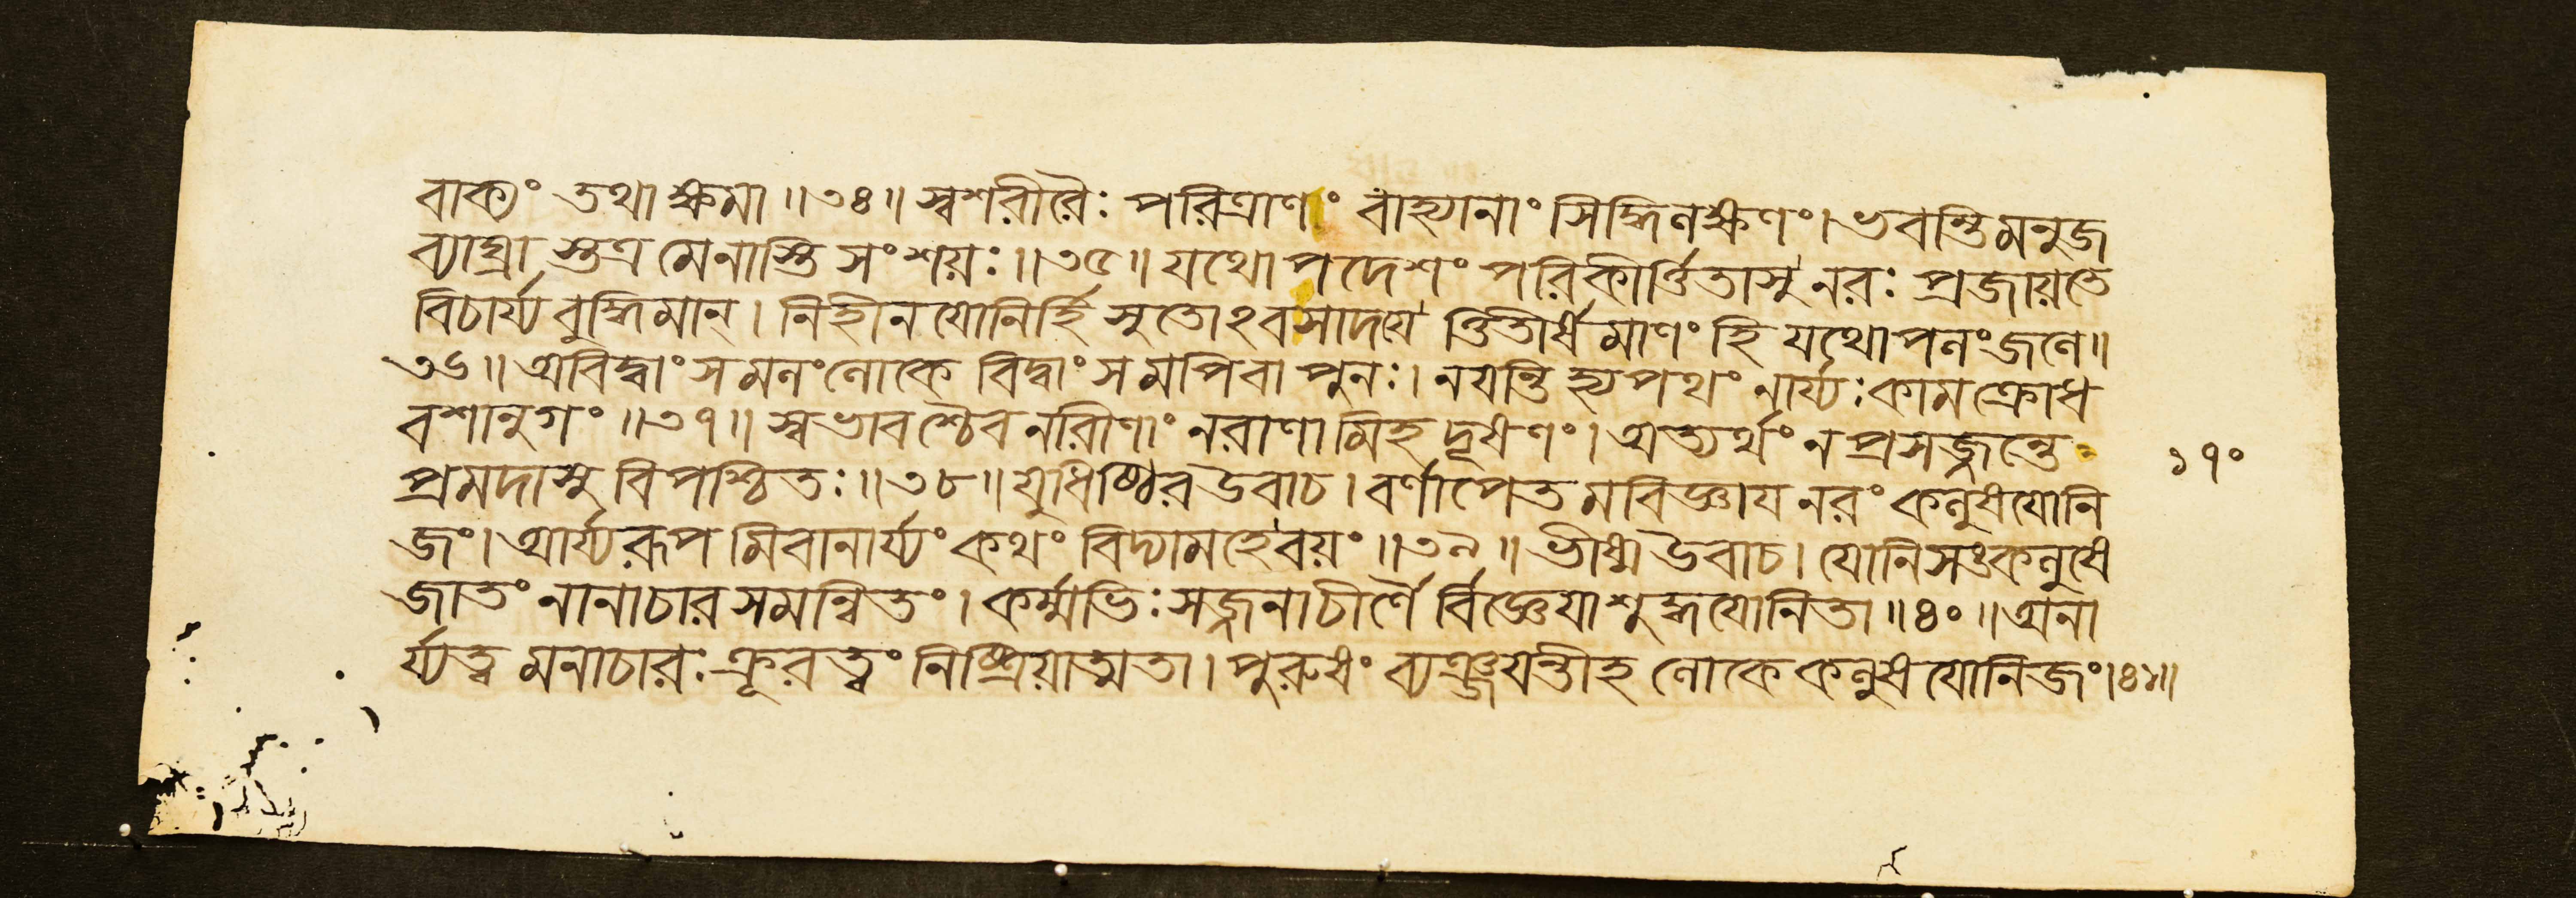 বাক্যং তথা ক্ষমা ॥৩৪॥ স্বশরীরৈঃ পরিত্রাণং বাহ্যানাং সিদ্ধিলক্ষণং। ভবন্তি মনুজ
ব্যাঘ্রা স্তত্র মেনাস্তি সংশয়ঃ ॥৩৫॥ যথোপদেশং পরিকীর্ত্তিতাসু নরঃ প্রজায়তে
বিচার্য্য বুদ্ধিমান্। নিহীনযোনির্হি সুতোঽবসাদয়ে ত্তিতীর্ষমাণং হি যথোপলং জলে॥
৩৬॥ অবিদ্বাংসমলং লোকে বিদ্বাংসমপি বা পুনঃ। নয়ন্তি হ্যপথং নার্য্যঃ কামক্রোধ
বশানুগং ॥৩৭॥ স্বভাবশ্চৈব নরীণাং নরাণামিহ দূষণং। অত্যর্থং ন প্রসজ্জন্তে
প্রমদাসু বিপশ্চিতঃ ॥৩৮॥ যুধিষ্ঠির উবাচ। বর্ণাপেতমবিজ্ঞায় নরং কলুষযোনি
জং। আর্য্যরূপমিবানার্য্যং কথং বিদ্যামহে বয়ং ॥৩৯॥ ভীষ্ম উবাচ। যোনিসঙ্কলুষে
জাতং নানাচারসমন্বিতং। কর্ম্মভিঃ সজ্জনাচীর্ণৈ র্বিজ্ঞেয়াশুদ্ধযোনিতা ॥৪০॥ অনা
র্য্যত্ব মনাচারঃ ক্রূরত্বং নিষ্ক্রিয়াত্মতা। পুরুষং ব্যঞ্জয়ন্তীহ লোকে কলুষযোনিজং।৪১॥
১৭০